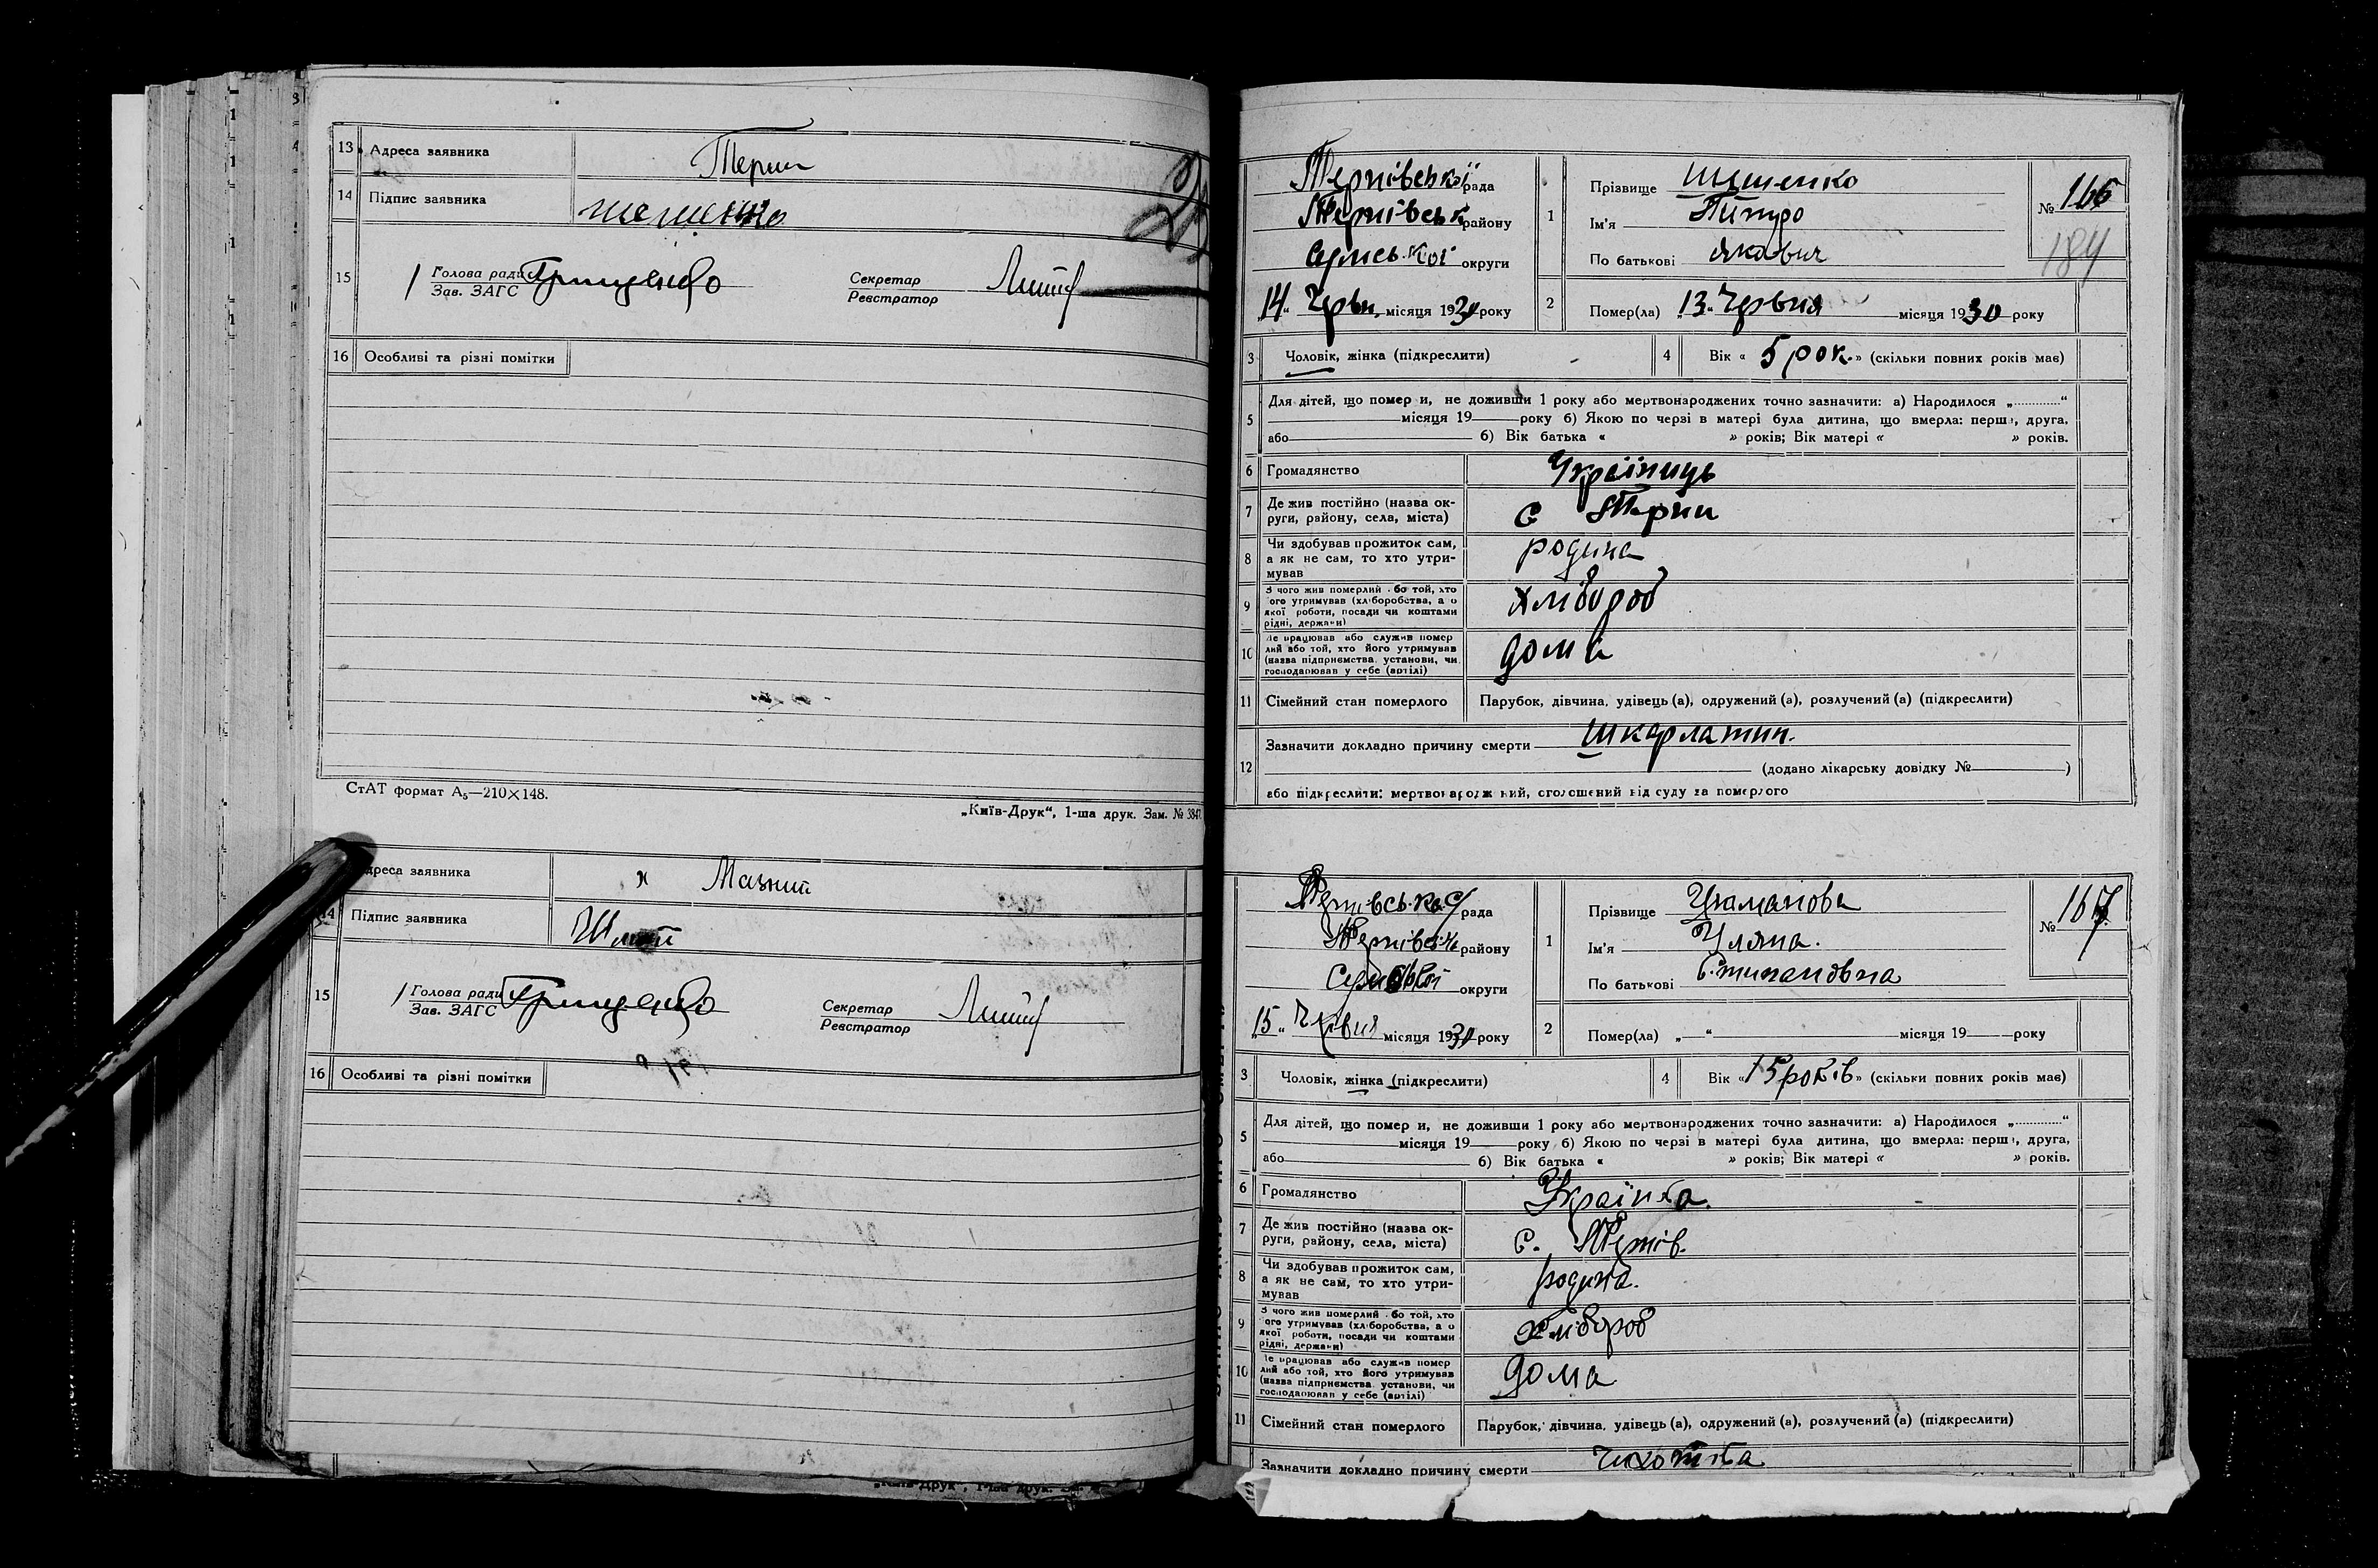 13 Адреса заявника Терни
14 Підпис заявника
15 Голова ради Грищенко Секретар
Зав. ЗАГС Реєстратор
16 Особливі та різні помітки
СтАТ формат А5—210×148.
„Київ-Друк“, 1-ша друк. Зам. № 3847
дреса заявника х Мазний
14 Підпис заявника
15 Голова ради Грищенко Секретар
Зав. ЗАГС Реєстратор
16 Особливі та різні помітки
Тернівської рада
Тернівськ району
Сумської округи
„14“ Червн. місяця 1930 року
1 Прізвище
Ім'я Питро
По батькові Якавич
№ 166
184
2 Помер(ла) „13“ Червня місяця 1930 року
3 Чоловік, жінка (підкреслити) 4 Вік « 5 рок. » (скільки повних років має)
5 Для дітей, що помер и, не доживши 1 року або мертвонароджених точно зазначити: а) Народилося „............“
місяця 19 року б) Якою по черзі в матері була дитина, що вмерла: перша, друга,
або б) Вік батька « » років; Вік матері « » років.
6 Громадянство Україниць
7 Де жив постійно (назва ок-
руги, району, села, міста) с Терни
8 Чи здобував прожиток сам,
а як не сам, то хто утри-
мував родина
9 З чого жив померлий або той, хто
його утримував (хліборобства, а о
якої роботи, посади чи коштами
рідні, держави) хлібороб
10 Де працював або служив помер
лий або той, хто його утримував
(назва підприємства, установи, чи
господарював у себе (артілі) дома
11 Сімейний стан померлого Парубок, дівчина, удівець (а), одружений (а), розлучений (а) (підкреслити)
12 Зазначити докладно причину смерти Шкарлатин.
(додано лікарську довідку № )
або підкреслити: мертвонароджений, оголошений від суду за померлого
Тернівська с/рада
Тернівськ району
Сумської округи
„15“ Червня місяця 1930 року
1 Прізвище
Ім'я Уляна.
По батькові Стипановна
№ 167
2 Помер(ла) „ “ місяця 19 року
3 Чоловік, жінка (підкреслити) 4 Вік « 15 років » (скільки повних років має)
5 Для дітей, що помер и, не доживши 1 року або мертвонароджених точно зазначити: а) Народилося „............“
місяця 19 року б) Якою по черзі в матері була дитина, що вмерла: перша, друга,
або б) Вік батька « » років; Вік матері « » років.
6 Громадянство Українка.
7 Де жив постійно (назва ок-
руги, району, села, міста) с.
8 Чи здобував прожиток сам,
а як не сам, то хто утри-
мував родина.
9 З чого жив померлий або той, хто
його утримував (хліборобства, а о
якої роботи, посади чи коштами
рідні, держави) хлібороб
10 Де працював або служив помер
лий або той, хто його утримував
(назва підприємства, установи, чи
господарював у себе (артілі) дома
11 Сімейний стан померлого Парубок, дівчина, удівець (а), одружений (а), розлучений (а) (підкреслити)
Зазначити докладно причину смерти